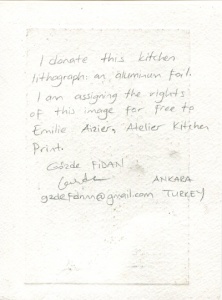 I donate this kitchen
lithograph: an aluminum foil.
I am assigning the rights
of this image for free to
Emilie Aizier, Atelier Kitchen
Print.
Gözde FİDAN
ANKARA
TURKEY